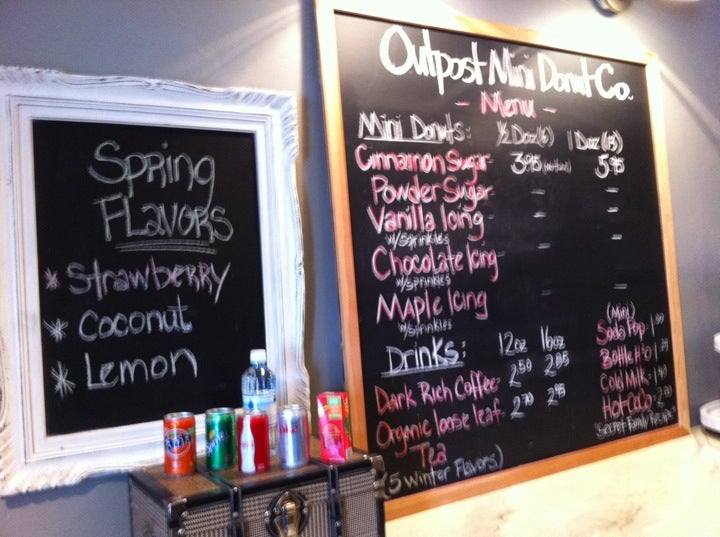 Spring
Flavors
* Strawberry
* Coconut
* Lemon
Fanta
Sprite
Outpost Mini Donut Co.
- Menu -
Mini Donuts: ½ Doz (6) 1 Doz (13)
Cinnamon Sugar 3.95 5.95
Powder Sugar - -
Vanilla Icing - -
w/sprinkles
Chocolate Icing - -
w/sprinkles
Maple Icing
w/sprinkles
Drinks: 12oz 16oz
Dark Rich Coffee 2.50 2.85
Organic loose leaf 2.70 2.95
Tea
(5 Winter Flavors)
(Mini)
Soda Pop 1.00
Bottle H2O 1.25
Cold Milk
Hot CoCo 2.00
"Secret Family Recipe"